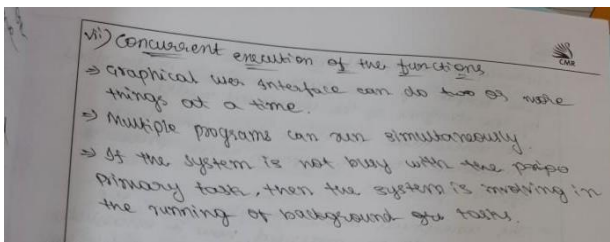 vii) Concurrent execution of the functions
CMR
⇒ Graphical user Interface can do two or more
things at a time.
⇒ Multiple programs can run simultaneously.
⇒ If the system is not busy with the
primary task, then the system is involving in
the running of background tasks.